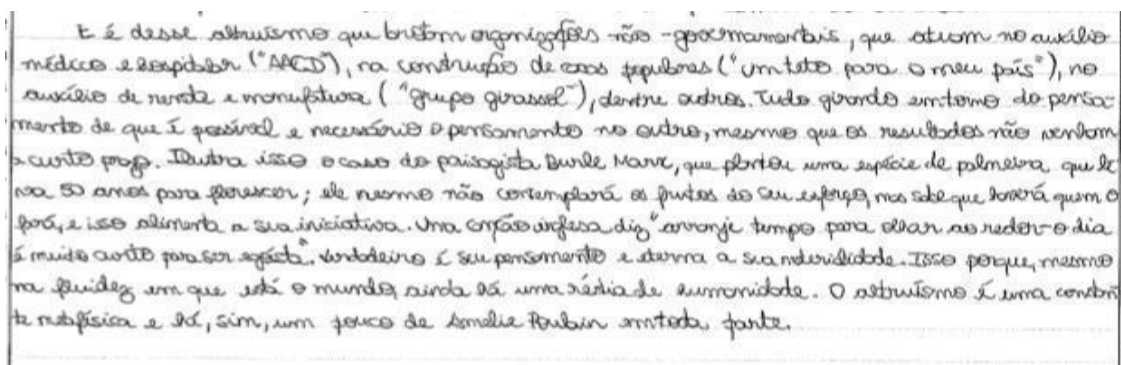 E é desse altruísmo que brotam organizações não-governamentais, que atuam no auxílio
médico e hospitalar ("AACD"), na construção de casas populares ("um teto para o meu país"), no
auxílio de renda e manufatura ("grupo girassol"), dentre outros. Tudo girando em torno do pensa-
mento de que é possível e necessário o pensamento no outro, mesmo que os resultados não venham
a curto prazo. Ilustra isso o caso do paisagista Burle Marx, que plantou uma espécie de palmeira que le
va 50 anos para florescer; ele mesmo não contemplará os frutos do seu esforço, mas sabe que haverá quem o
fará, e isso alimenta a sua iniciativa. Uma canção inglesa diz "arranje tempo para olhar ao redor - o dia
é muito curto para ser egoísta". Verdadeiro é seu pensamento e eterna a sua
Isso porque, mesmo
na fluidez em que está o mundo, ainda há uma réstia de humanidade. O altruísmo é uma constân
te metafísica e há, sim, um pouco de Amelie Poulain em toda parte.